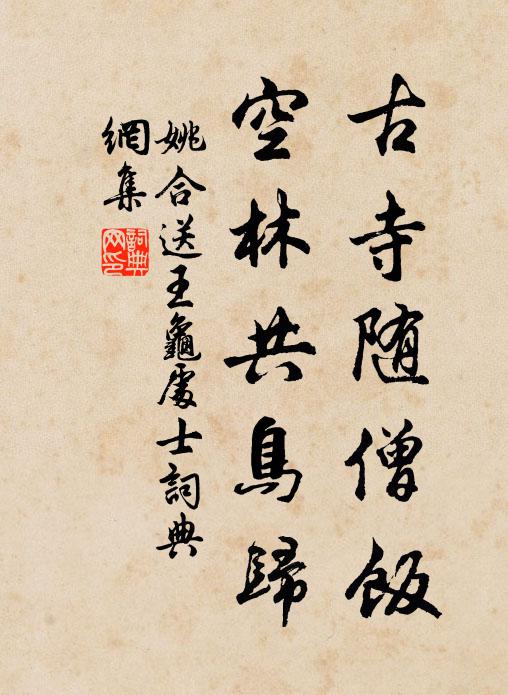 古寺随僧飯
空林共鳥歸
姚合送王龜處士詞典
網集
詞典
网印